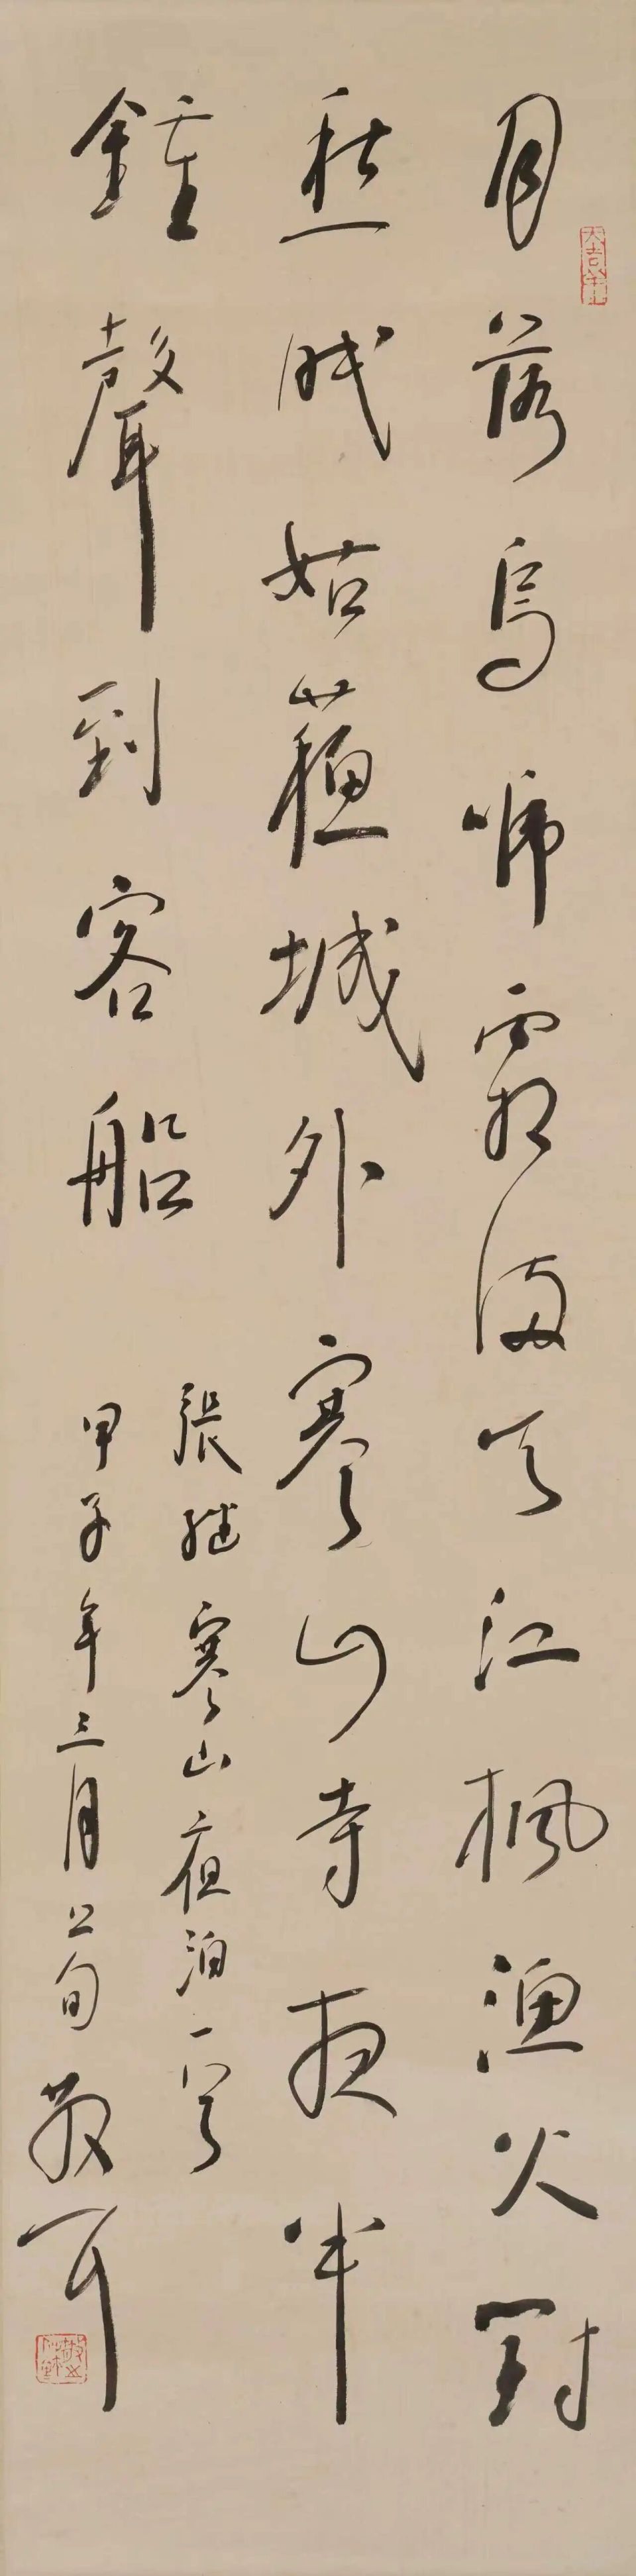 月落烏啼霜滿天江楓漁火對
愁眠姑蘇城外寒山寺夜半
鍾聲到客船
張继寒山夜泊一首
甲子年三月上旬散耳
大吉羊